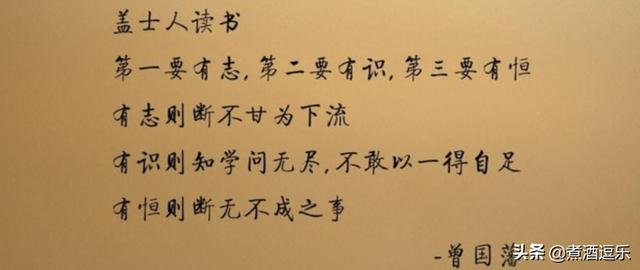 盖士人读书
第一要有志,第二要有识,第三要有恒
有志则断不甘为下流
有识则知学问无尽,不敢以一得自足
有恒则断无不成之事
-曾国藩
头条 @煮酒逗乐